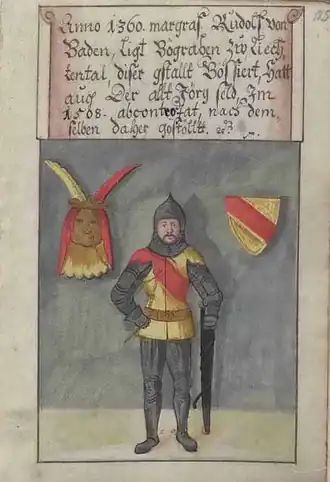 Anno 1360. margraf Rudolf von
Baden, ligt Bögraben zw Liech
tental, diser gstallt Bössiert, hatt
auch Der allt Jörg seld, Im
1508. abcontrotat, nach dem
selben daher gestöllt.